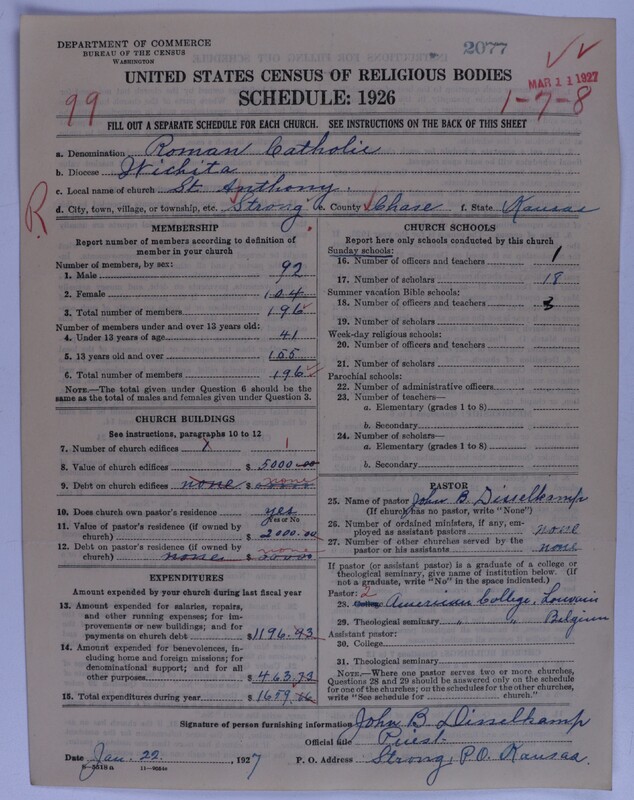 DEPARTMENT OF COMMERCE
BUREAU OF THE CENSUS
WASHINGTON
2077
MAR 11 1927
UNITED STATES CENSUS OF RELIGIOUS BODIES
SCHEDULE: 1926
99
1-7-8
FILL OUT A SEPARATE SCHEDULE FOR EACH CHURCH. SEE INSTRUCTIONS ON THE BACK OF THIS SHEET
a. Denomination Roman Catholic
b. Diocese Wichita
c. Local name of church St. Anthony.
d. City, town, village, or township, etc. Strong e. County Chase f. State Kansas
R
MEMBERSHIP
Report number of members according to definition of
member in your church
Number of members, by sex:
1. Male 92
2. Female 104
3. Total number of members 196
Number of members under and over 13 years old:
4. Under 13 years of age 41
5. 13 years old and over 155
6. Total number of members 196
NOTE.—The total given under Question 6 should be the
same as the total of males and females given under Question 3.
CHURCH BUILDINGS
See instructions, paragraphs 10 to 12
7. Number of church edifices 1
8. Value of church edifices $ 5000.00
9. Debt on church edifices none $ none
10. Does church own pastor's residence yes
Yes or No
11. Value of pastor's residence (if owned by
church) $ 2000.00
12. Debt on pastor's residence (if owned by
church) none $ none
EXPENDITURES
Amount expended by your church during last fiscal year
13. Amount expended for salaries, repairs,
and other running expenses; for im-
provements or new buildings; and for
payments on church debt $ 1196.43
14. Amount expended for benevolences, in-
cluding home and foreign missions; for
denominational support; and for all
other purposes $ 463.23
15. Total expenditures during year $ 1659.66
CHURCH SCHOOLS
Report here only schools conducted by this church
Sunday schools:
16. Number of officers and teachers 1
17. Number of scholars 18
Summer vacation Bible schools:
18. Number of officers and teachers 3
19. Number of scholars
Week-day religious schools:
20. Number of officers and teachers
21. Number of scholars
Parochial schools:
22. Number of administrative officers
23. Number of teachers—
a. Elementary (grades 1 to 8)
b. Secondary
24. Number of scholars—
a. Elementary (grades 1 to 8)
b. Secondary
PASTOR
25. Name of pastor John B. Disselkamp
(If church has no pastor, write "None")
26. Number of ordained ministers, if any, em-
ployed as assistant pastors none
27. Number of other churches served by the
pastor or his assistants none
If pastor (or assistant pastor) is a graduate of a college or
theological seminary, give name of institution below. (If
not a graduate, write "No" in the space indicated.)
Pastor: 2
28. College American College, Louvain
29. Theological seminary " " Belgium
Assistant pastor:
30. College
31. Theological seminary
NOTE.—Where one pastor serves two or more churches,
Questions 28 and 29 should be answered only on the schedule
for one of the churches; on the schedules for the other churches,
write "See schedule for church."
Signature of person furnishing information John B Disselkamp
Official title Priest.
Date Jan. 22. , 1927 P. O. Address Strong, P.O. Kansas.